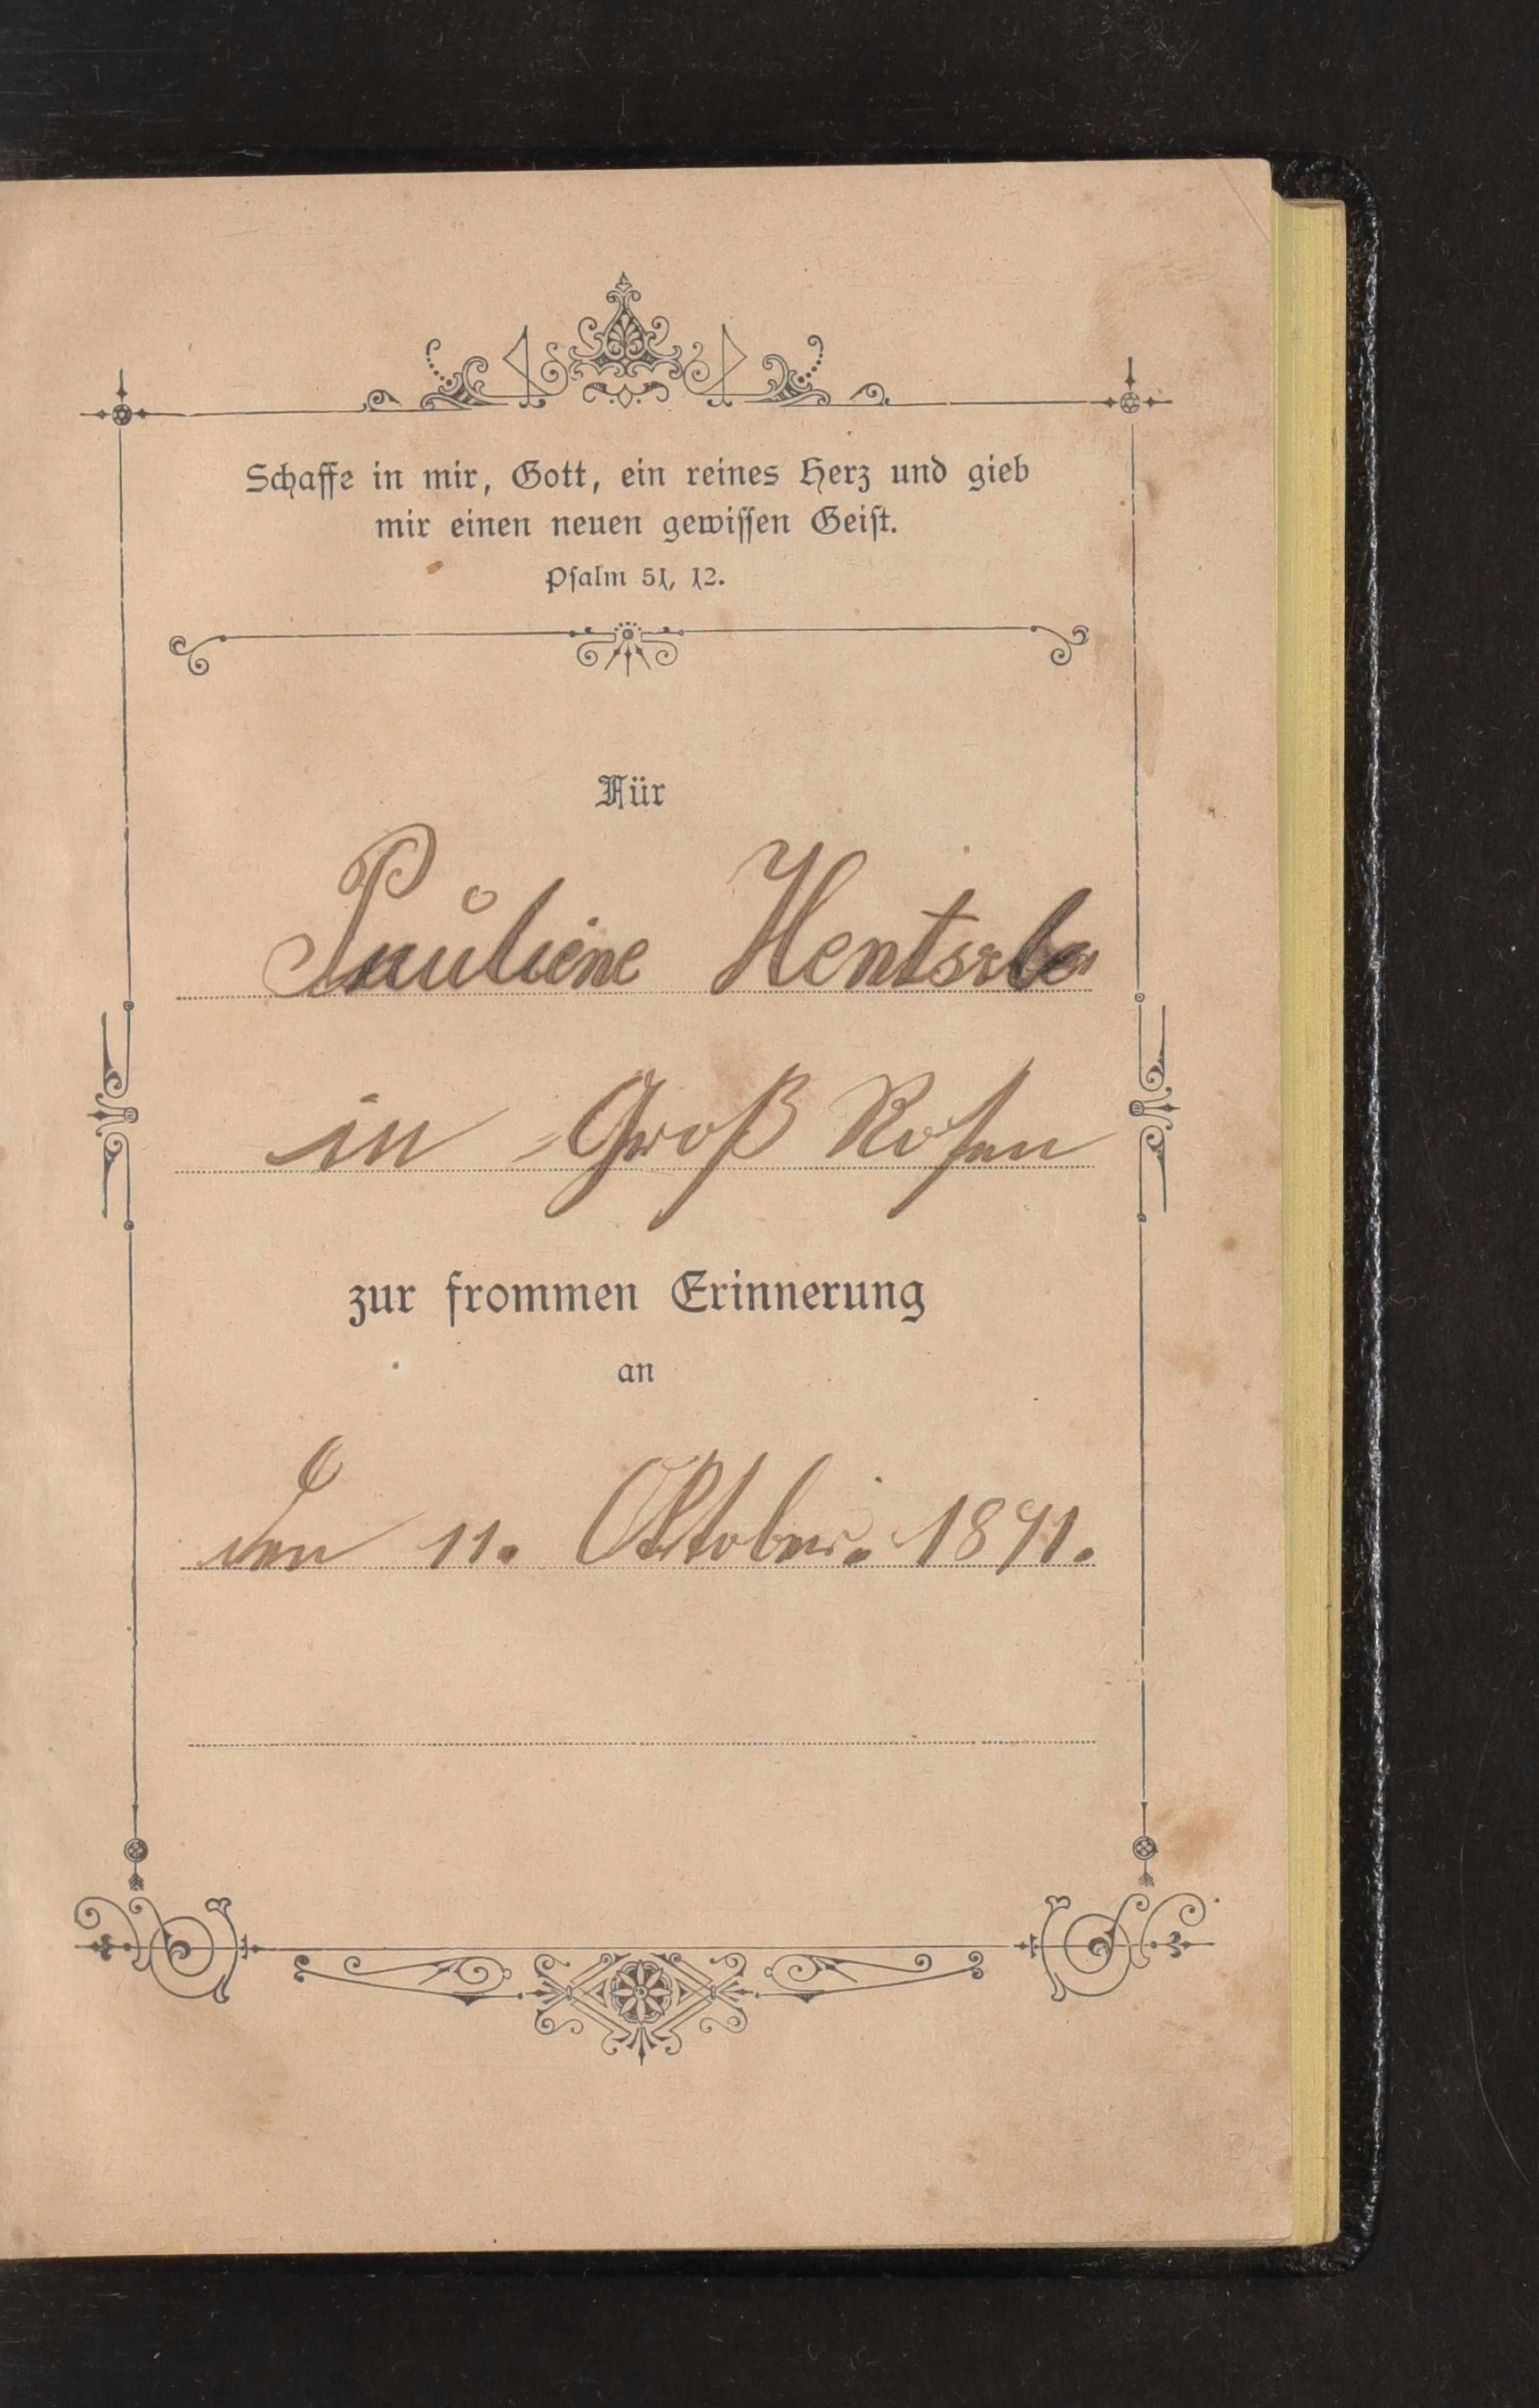 Schaffe in mir, Gott, ein reines Herz und gieb
mir einen neuen gewissen Geist.
Psalm 51, 12.
Für
Pauliene
in Groß Rosen
zur frommen Erinnerung
an
den 11. Oktober. 1891.